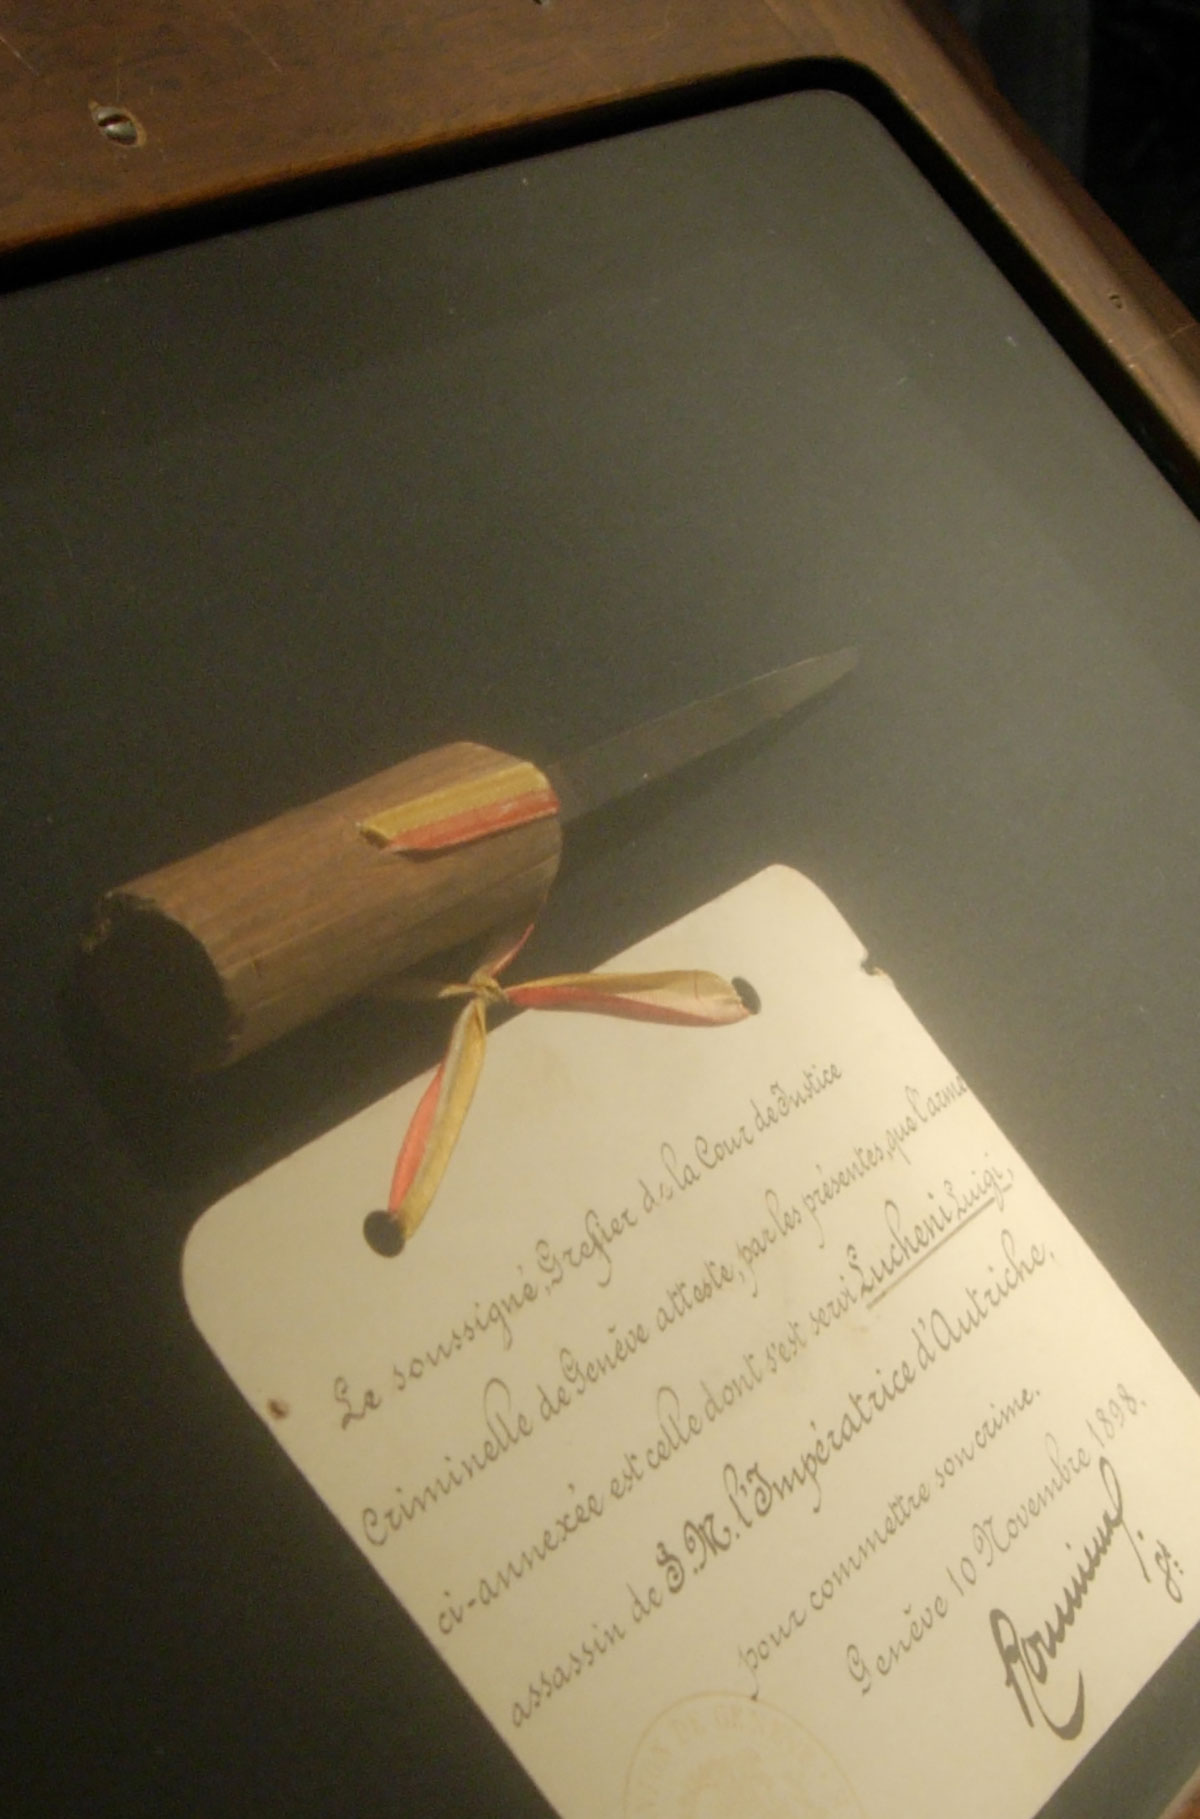 Le soussigné, Greffier de la Cour de Justice
Criminelle de Genève atteste, par les présentes, que l'arme
ci-annexée est celle dont s'est servi Lucheni Luigi,
assassin de S. M. l'Impératrice d'Autriche,
pour commettre son crime.
Genève 10 Novembre 1898.
DE GENÈVE